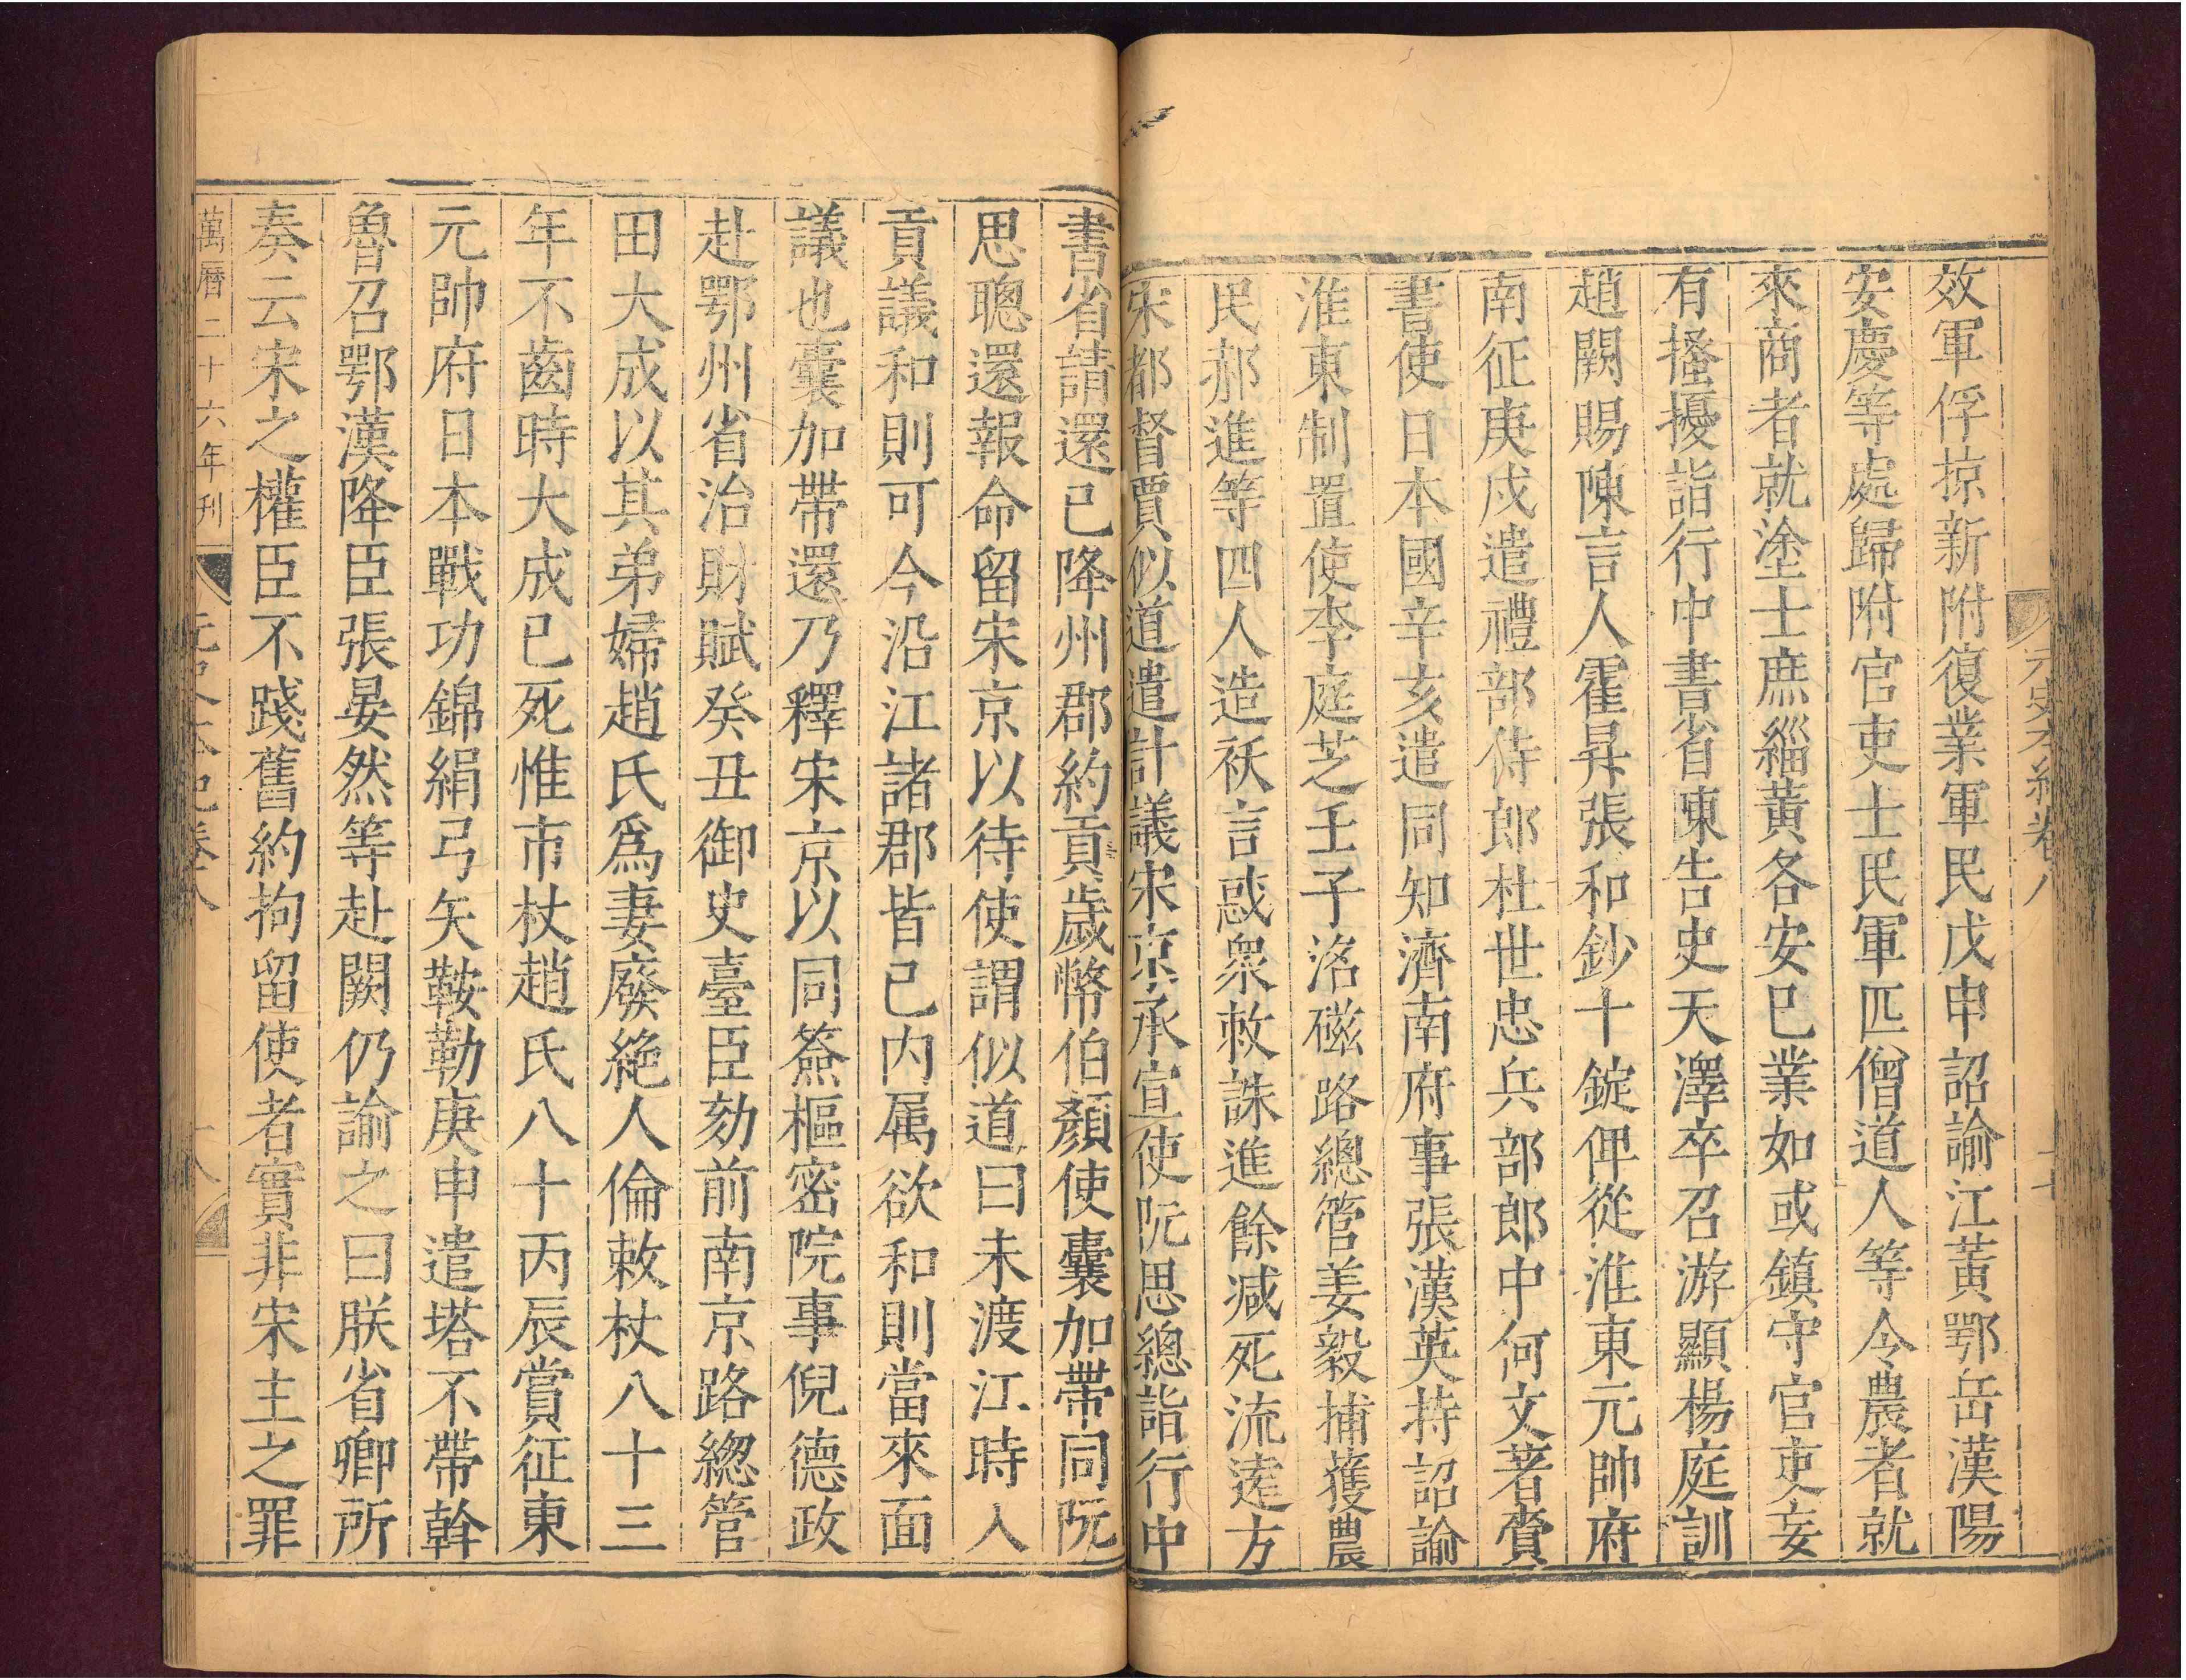 元史本紀卷八
效軍俘掠新附復業軍民戊申詔諭江黃鄂岳漢陽
安慶等處歸附官吏士民軍匹僧道人等令農者就
來商者就塗士庶緇黃各安巳業如或鎮守官吏妄
有搔擾詣行中書省陳告史天澤卒召游顯楊庭訓
趙闕賜陳言人霍昇張和鈔十錠俾從淮東元帥府
南征庚戌遣禮部侍郎杜世忠兵部郎中何文著賫
書使日本國辛亥遣同知濟南府事張漢英持詔諭
淮東制置使李庭芝壬子洺磁路總管姜毅捕獲農
民郝進等四人造祅言惑衆敕誅進餘减死流逺方
宋都督賈似道遣計議宋京承宣使阮思總詣行中
書省請還已降州郡約貢歲幣伯顏使囊加帶同阮
思聰還報命留宋京以待使謂似道曰未渡江時入
貢議和則可今沿江諸郡皆已内属欲和則當來面
議也囊加帶還乃釋宋京以同簽樞密院事倪德政
赴鄂州省治財賦癸丑御史臺臣劾前南京路緫管
田大成以其弟婦趙氏爲妻廢絶人倫敕杖八十三
年不齒時大成已死惟市杖趙氏八十丙辰賞征東
元帥府日本戰功錦絹弓矢鞍勒庚申遣塔不帶幹
魯召鄂漢降臣張晏然等赴闕仍諭之曰朕省卿所
奏云宋之權臣不踐舊約拘留使者實非宋主之罪
萬曆二十六年刊
元史本紀卷八